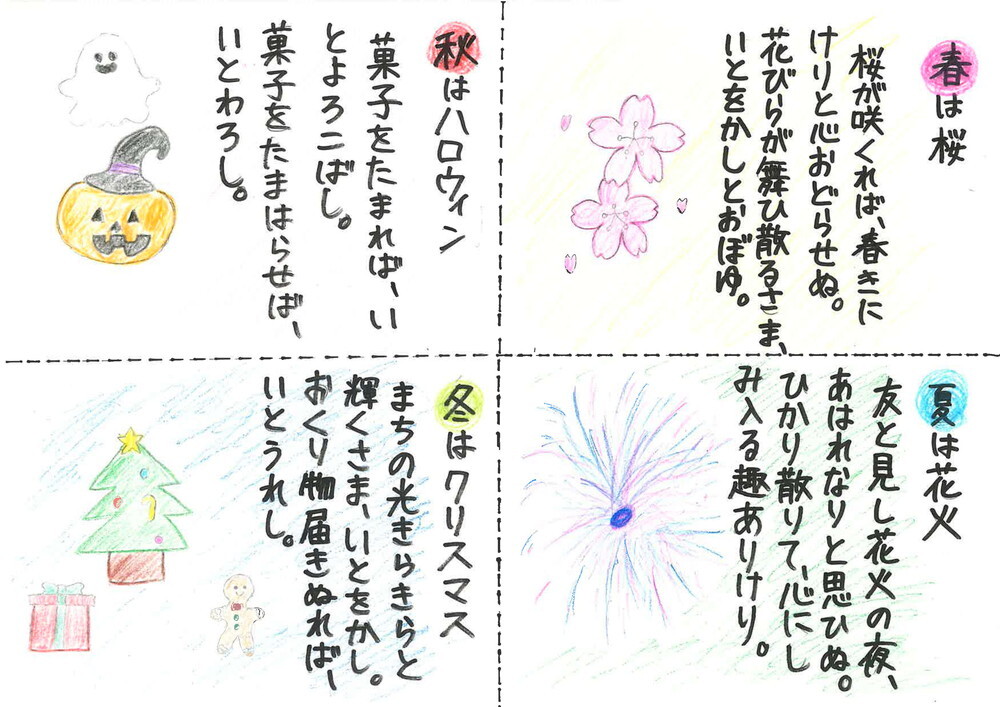 春は桜
桜が咲くれば、春きに
けりと心おどらせぬ。
花びらが舞ひ散るさま、
いとをかしとおぼゆ。
夏は花火
友と見し花火の夜、
あはれなりと思ひぬ。
ひかり散りて、心にし
み入る趣ありけり。
秋はハロウィン
菓子をたまれば、い
とよろこばし。
菓子をたまはらせば、
いとわろし。
冬はクリスマス
まちの光きらきらと
輝くさま、いとをかし。
おくり物届きぬれば、
いとうれし。